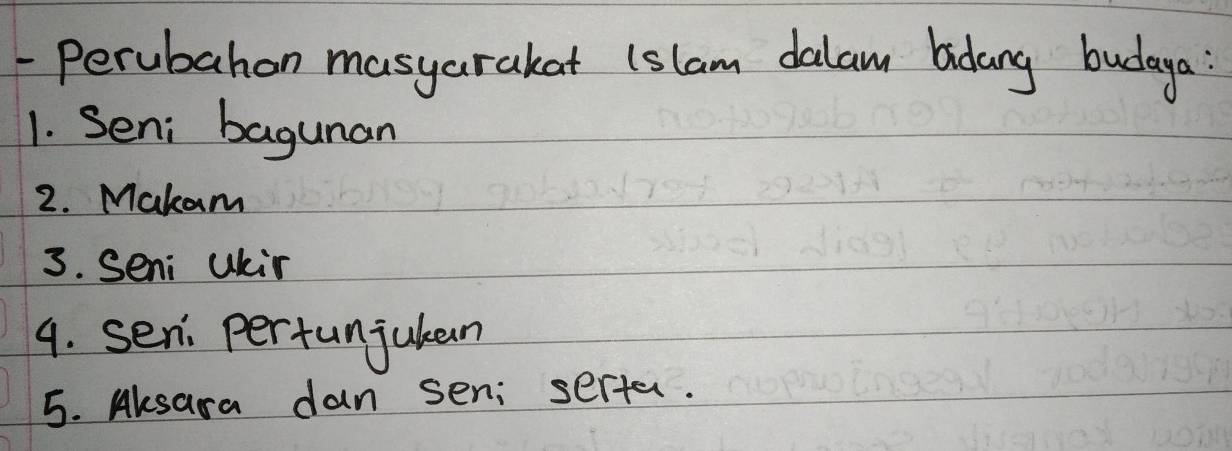 - Perubahan masyarakat Islam dalam bidang budaya:
1. Seni bagunan
2. Makam
3. Seni ukir
4. seni pertunjukan
5. Aksara dan seni serta.